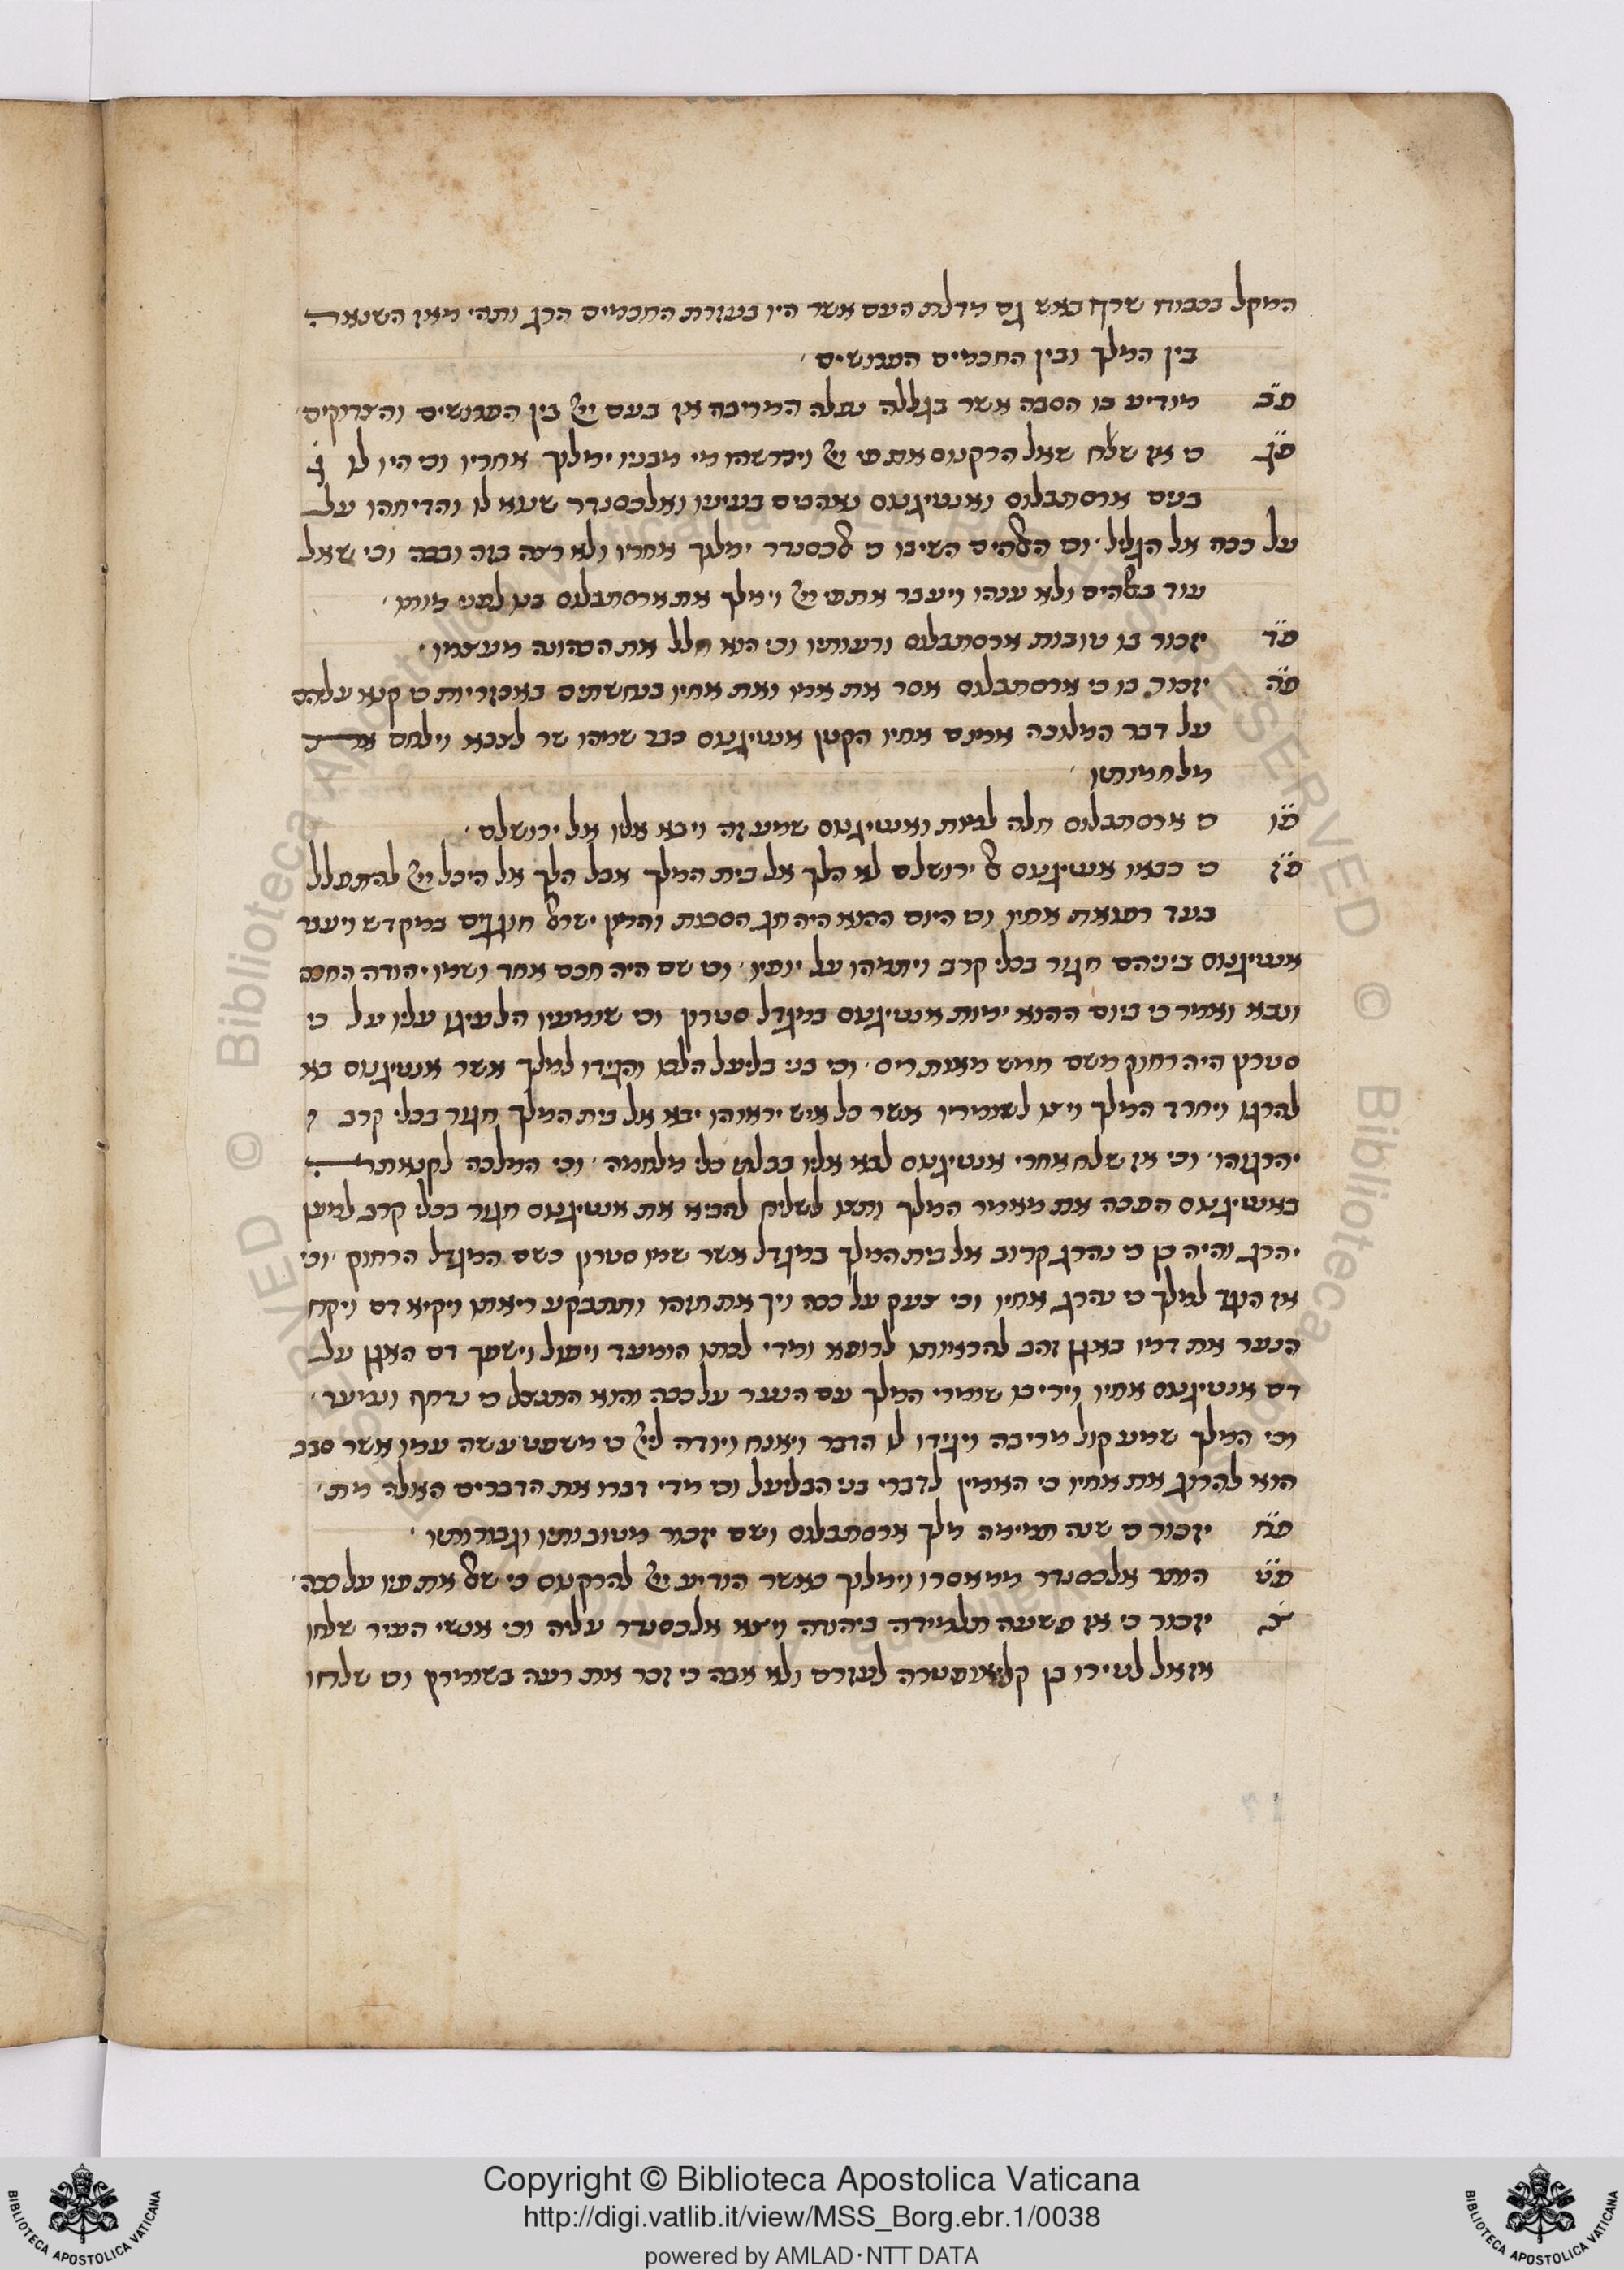 המקל בכבוח שרף באש גם מדלת העם אשר היו בעזרת החכמים הרג ותהי מאז השנאה
בין המלך ובין החכמים הפרושים
פ״ב מודיע בו הסבה אשר בגללה עלה המריבה אז בעם יי׳ בין הפרושים והצדוקים
פ״ג כי אז שלח שאל הרקנוס את פי יי׳ וידרשהו מי מבניו ימלוך אחריו וכי היו לו ג׳
בנים ארסתבלוס ואנטיגנוס נאהבים בעיניו ואלכסנדר שנא לו והדיחהו על
על ככה אל הגליל וכי האלהים השיבו כי אלכסנדר ימלוך אחריו ולא רצה בזה ובכה וכי שאל
עוד באלהים ולא ענהו ויעבר את פי יי׳ וימלך את ארסתבלוס בנו לפני מותו
פ״ד יזכור בו טובות ארסתבלוס ורעותיו וכי הוא חלל את הכהונה מעצמו
פ״ה יזכור בו כי ארסתבלוס אסר את אמו ואת אחיו בנחשתים באכזריות כי קנא עליהם
על דבר המלוכה אמנם אחיו הקטן אנטיגנוס כבר שמהו שר לצבא וילחם את
מלחמותיו
פ״ו כי ארסתבלוס חלה למות ואנטיגנוס שמע זה ויבא אליו אל ירושלם
פ״ז כי בבאו אנטיגנוס אל ירושלם לא הלך אל בית המלך אבל הלך אל היכל יי׳ להתפלל
בעד רפואת אחיו וכי היום ההוא היה חג הסכות והמון ישראל חוגגים במקדש ויעבר
אנטיגנוס ביניהם חגור בכלי קרב ויתמהו על יופיו וכי שם היה חכם אחד ושמו יהודה החכם
ונבא ואמר כי ביום ההוא ימות אנטיגנוס במגדל סטרון וכי שומעיו הלעיגו עליו על כי
סטרון היה רחוק משם חמש מאות ריס וכי בני בליעל הלכו והגידו למלך אשר אנטיגנוס בא
להרגו ויחרד המלך ויצו לשומריו אשר כל איש יראוהו יבא אל בית המלך חגור בכלי קרב
יהרגהו וכי אז שלח אחרי אנטיגנוס לבא אליו בבלתי כלי מלחמה וכי המלכה לקנאתה
באנטיגנוס הפכה את מאמר המלך ותצו לשליח להביא את אנטיגנוס חגור בכלי קרב למען
יהרג והיה כן כי נהרג קרוב אל בית המלך במגדל אשר שמו סטרון כשם המגדל הרחוק וכי
אז הגד למלך כי נהרג אחיו וכי צעק על ככה ויך את חזהו ותתבקע ריאתו ויקיא דם ויקח
הנער את דמיו באגן זהב להראותו לרופא ומדי לכתו הומעד ויפול וישפך דם האגן על
דם אנטיגנוס אחיו ויריבו שומרי המלך עם הנער על ככה והוא התנצל כי נדחף ונמעד
וכי המלך שמע קול מריבה ויגידו לו הדבר ויאנח ויודה ליי׳ כי משפט עשה עמו אשר סבב
הוא להרוג את אחיו כי האמין לדברי בני הבליעל וכי מדי דברו את הדברים האלה מת
פ״ח יזכור כי שנה תמימה מלך ארסתבלוס ושם יזכור מטובותיו וגבורותיו
פ״ט הותר אלכסנדר ממאסרו וימלוך כאשר הודיע יי׳ להרקנוס כי שאל את פיו על ככה
צ׳ יזכור כי אז פשעה תלמידה ביהודה ויצא אלכסנדר עליה וכי אנשי העיר שלחו
אז אל לטירו בן קליאופטרה לעזרם ולא אבה כי זכר את רעה בשומרון וכי שלחו